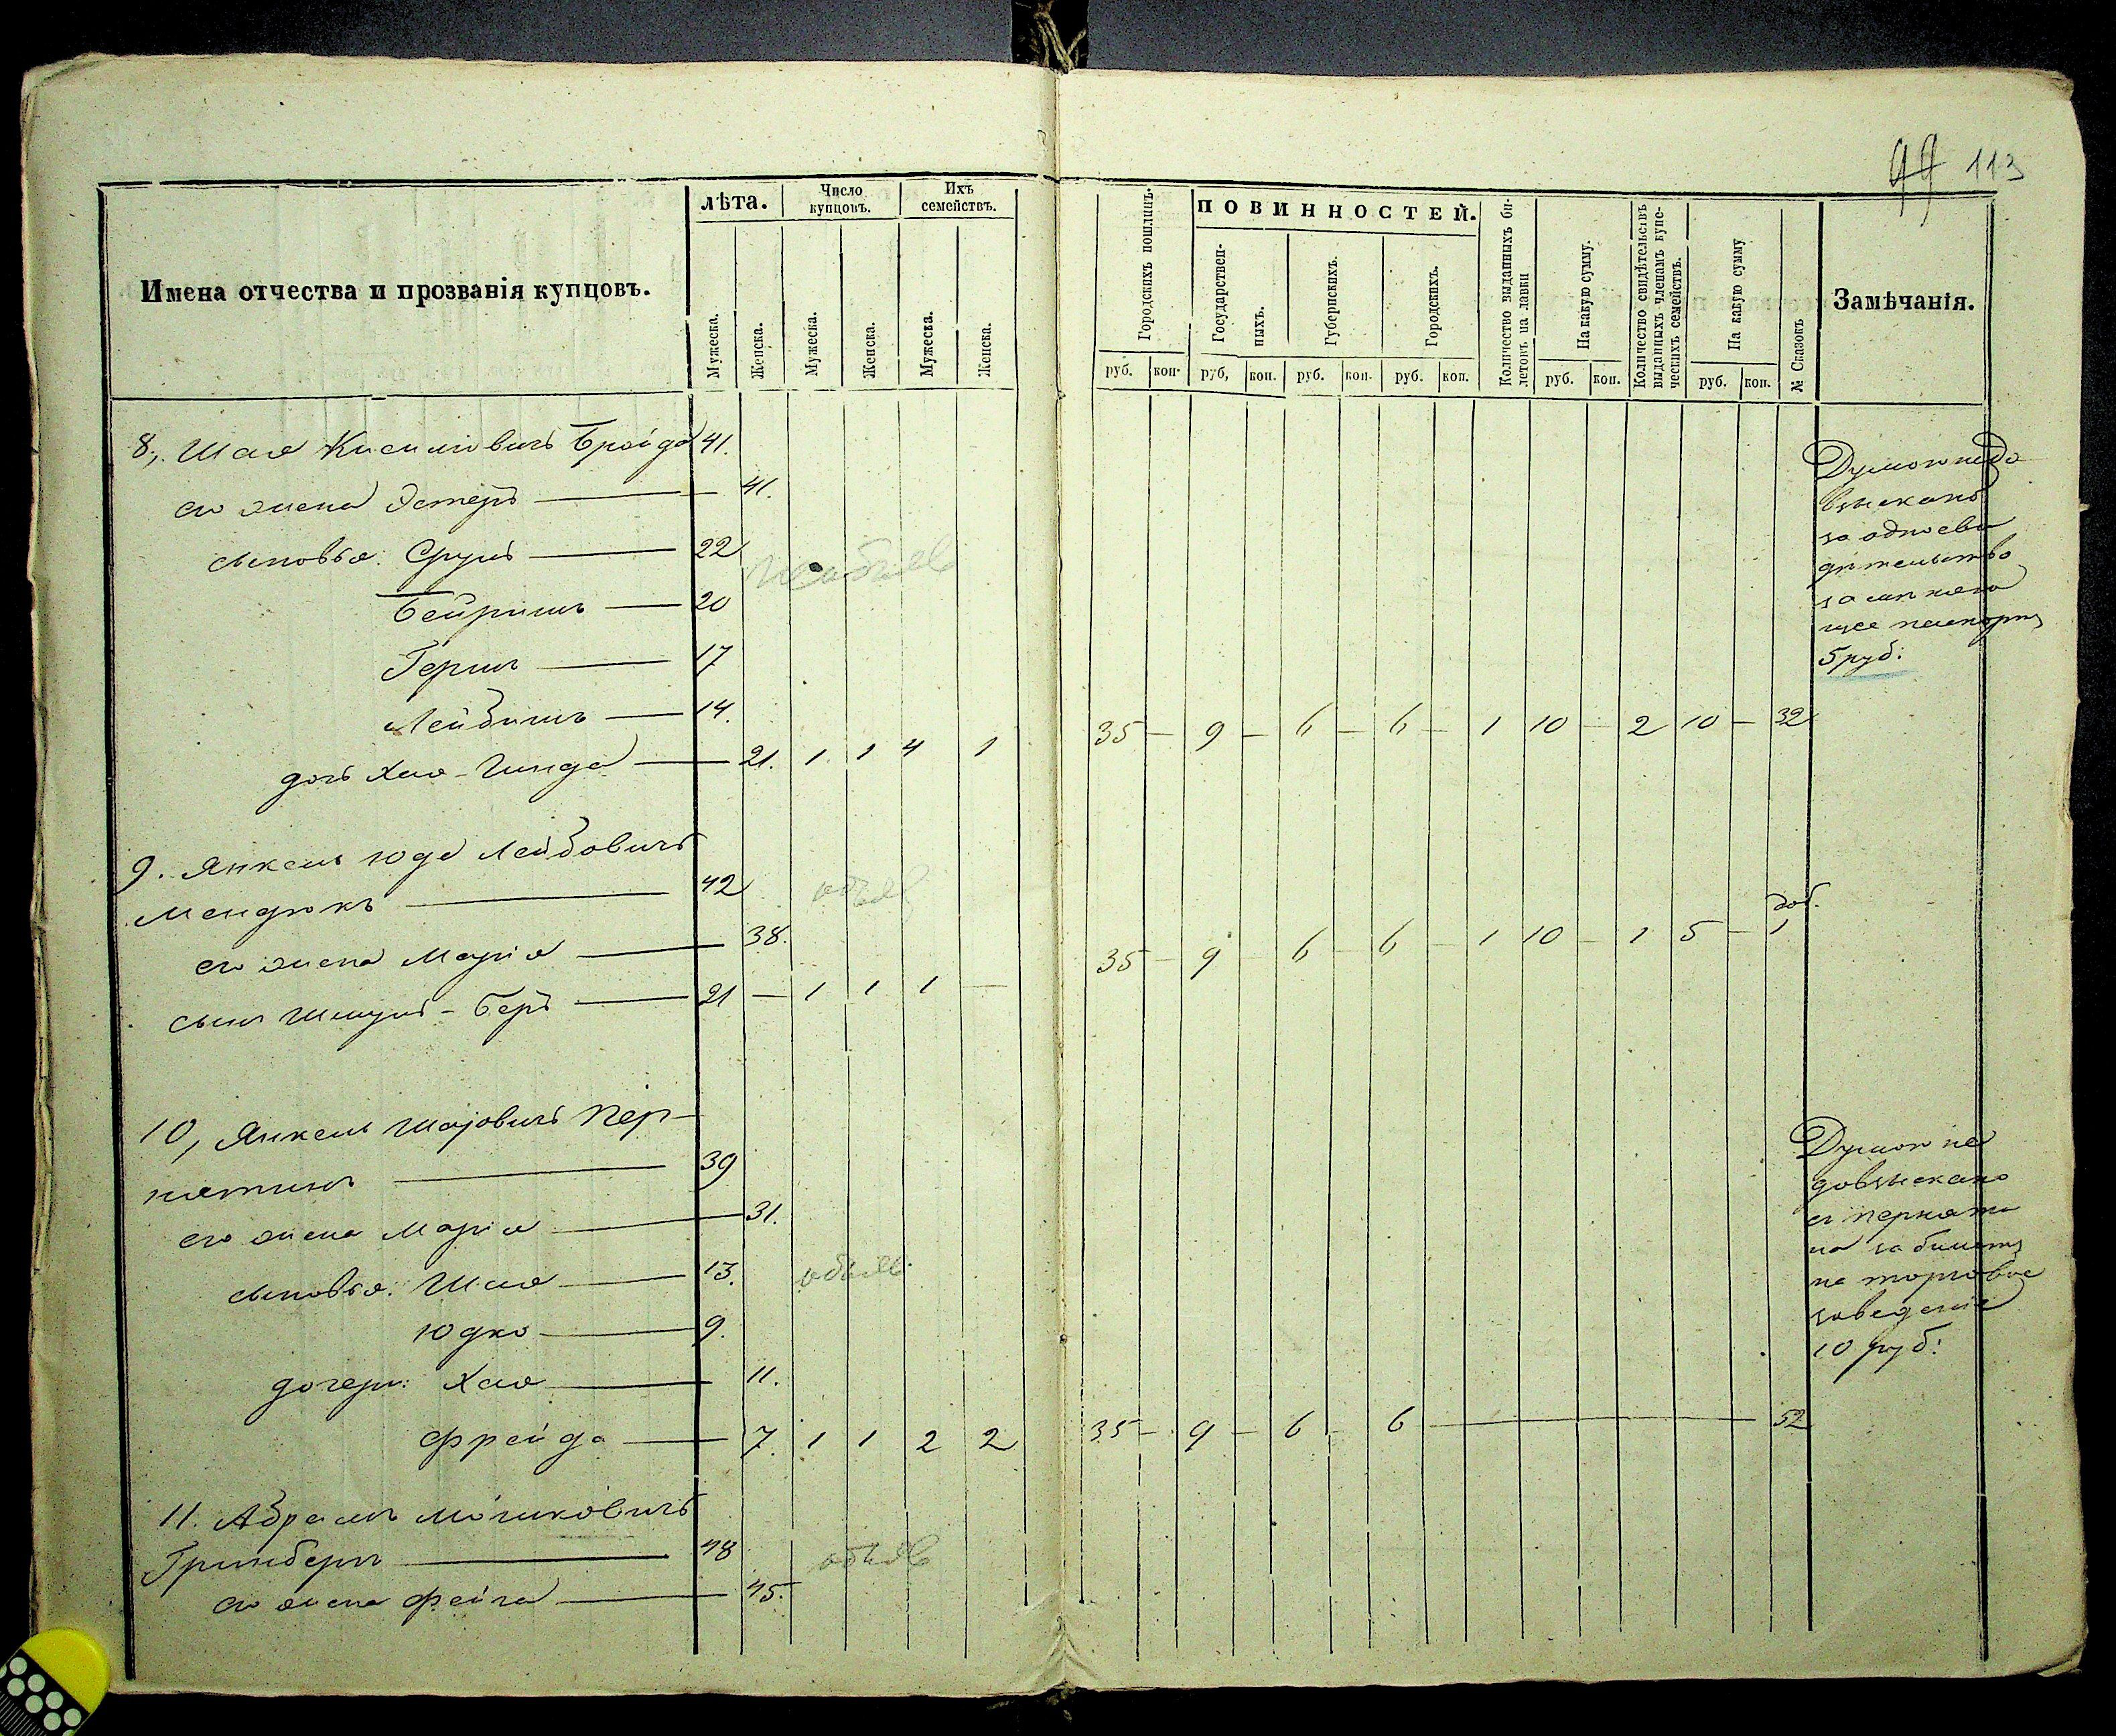 99 113
Имена отчества и прозванія купцовъ.
лѣта.
Число купцовъ.
Ихъ семействъ.
Мужеска.
Женска.
Мужеска.
Женска.
Мужеска.
Женска.
Городскихъ пошлинъ.
ПОВИННОСТЕЙ.
Государствен-
ныхъ.
Губернскихъ.
Городскихъ.
Количество выданныхъ би-
летовъ на лавки
На какую сумму.
Количество свидѣтельствъ
выданныхъ членамъ купе-
ческихъ семействъ.
На какую сумму
№ Сказокъ
Замѣчанія.
руб. коп. руб, коп. руб. коп. руб. коп. руб. коп. руб. коп.
8,. Шая Кисилiовичъ Бройда 41.
его жена Эстеръ — 41.
сыновья: Сруль — 22
Бейришъ — 20
Гершъ — 17
Лейбишъ — 14.
дочь Хая-Гинда — 21. 1 1 4 1 35 — 9 — 6 — 6 — 1 10 — 2 10 — 32
Думою недо
взыскано
за одно сви
дѣтельство
замѣняю
щее паспортъ
5 руб:
9. Янкель Юда Лейбовичъ
Мендюкъ — 42 объяв
его жена Марія — 38.
сынъ Шмуль-Беръ — 21 — 1 1 1 — 35 — 9 — 6 — 6 — 1 10 — 1 5 — доб. 1
10, Янкель Шаjовичъ Пер-
нятинъ — 39
его жена Марія — 31.
сыновья: Шая — 13. объяв
Юдко — 9.
дочери: Хая — 11.
Фрейда — 7. 1 1 2 2 35 — 9 — 6 — 6 — 52
Думою не
довзыскано
съ Перняти
на за билетъ
на торговое
заведеніе
10 руб:
11. Абрамъ Мошковичъ
Гринбергъ — 48 объяв
его жена Фейга — 45.